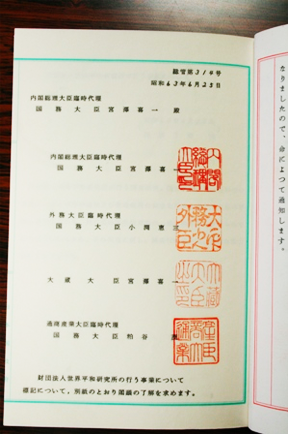 閣官第314号
昭和63年6月23日
内閣総理大臣臨時代理
国務大臣宮澤喜一 殿
内閣総理大臣臨時代理
国務大臣宮澤喜一
外務大臣臨時代理
国務大臣小渕恵三
大蔵大臣宮澤喜一
通商産業大臣臨時代理
国務大臣粕谷
財団法人世界平和研究所の行う事業について
標記について、別紙のとおり閣議の了解を求めます。
なりましたので、命によつて通知します。